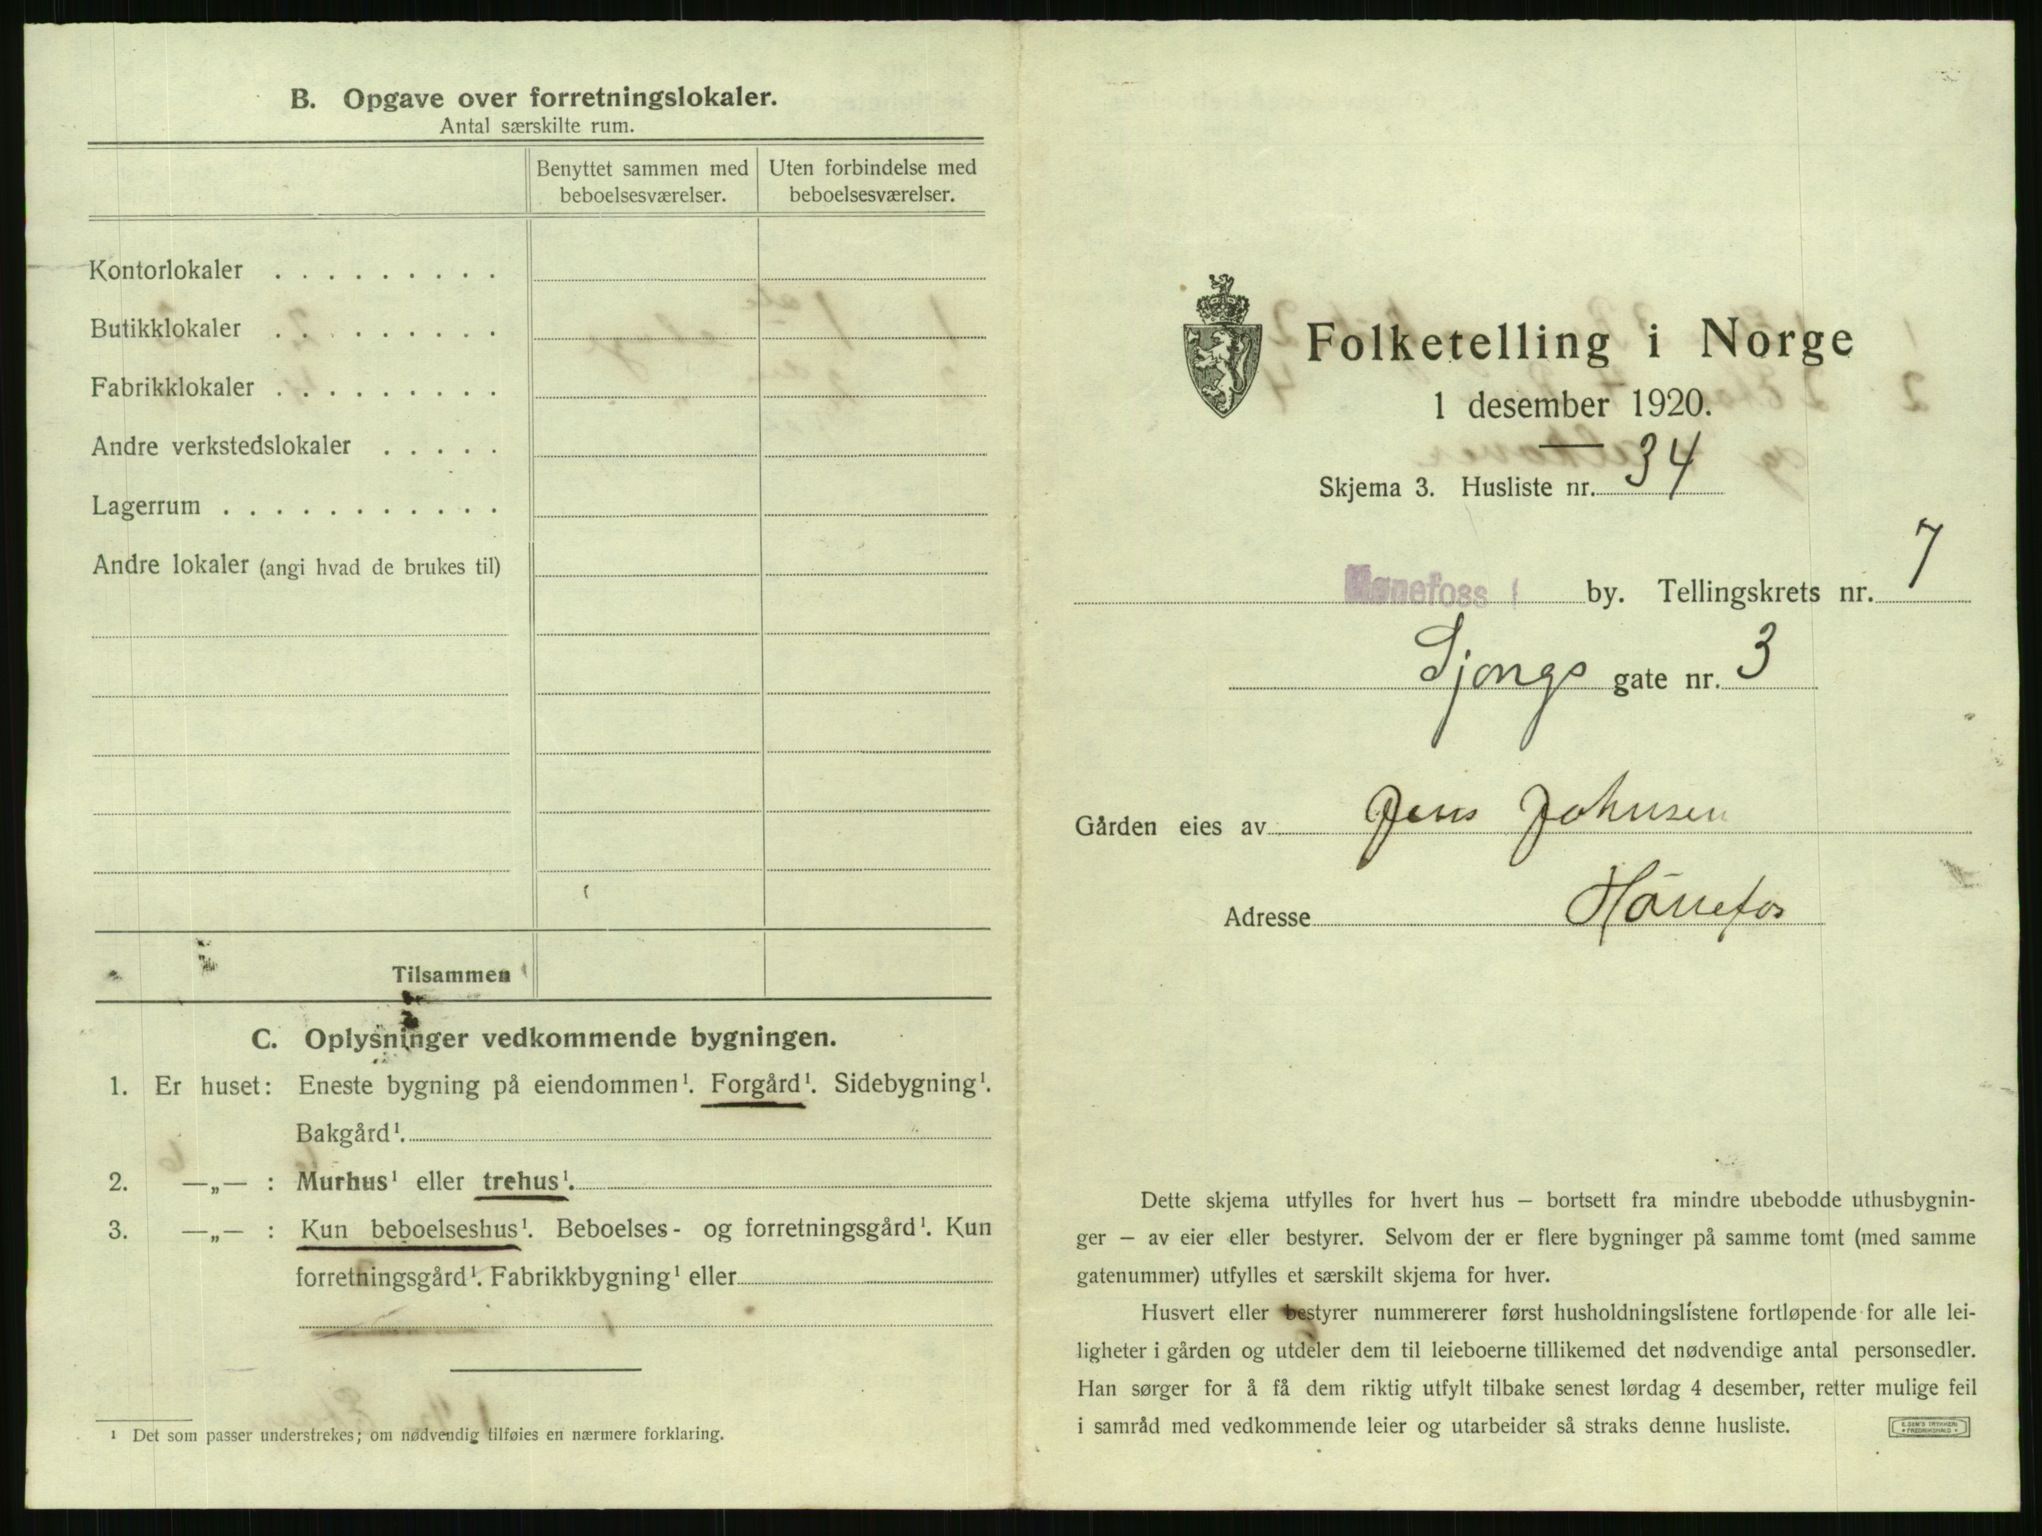 B. Opgave over forretningslokaler.
Antal særskilte rum.
Benyttet sammen med beboelsesværelser.
Uten forbindelse med beboelsesværelser.
Kontorlokaler . . . . . . . . .
Butikklokaler . . . . . . . . .
Fabrikklokaler . . . . . . . . .
Andre verkstedslokaler . . . . .
Lagerrum . . . . . . . . . . .
Andre lokaler (angi hvad de brukes til)
Tilsammen
C. Oplysninger vedkommende bygningen.
1. Er huset: Eneste bygning på eiendommen¹. Forgård¹. Sidebygning¹.
Bakgård¹.
2. —„— : Murhus¹ eller trehus¹.
3. —„— : Kun beboelseshus¹. Beboelses- og forretningsgård¹. Kun
forretningsgård¹. Fabrikkbygning¹ eller
¹ Det som passer understrekes; om nødvendig tilføies en nærmere forklaring.
Folketelling i Norge
1 desember 1920.
Skjema 3. Husliste nr. 34
Hønefoss by. Tellingskrets nr. 7
Sjongs gate nr. 3
Gården eies av Jens Johnsen
Adresse Hönefos
Dette skjema utfylles for hvert hus – bortsett fra mindre ubebodde uthusbygnin-
ger – av eier eller bestyrer. Selvom der er flere bygninger på samme tomt (med samme
gatenummer) utfylles et særskilt skjema for hver.
Husvert eller bestyrer nummererer først husholdningslistene fortløpende for alle lei-
ligheter i gården og utdeler dem til leieboerne tillikemed det nødvendige antal personsedler.
Han sørger for å få dem riktig utfylt tilbake senest lørdag 4 desember, retter mulige feil
i samråd med vedkommende leier og utarbeider så straks denne husliste.
E. SEM'S TRYKKERI
FREDRIKSHALD